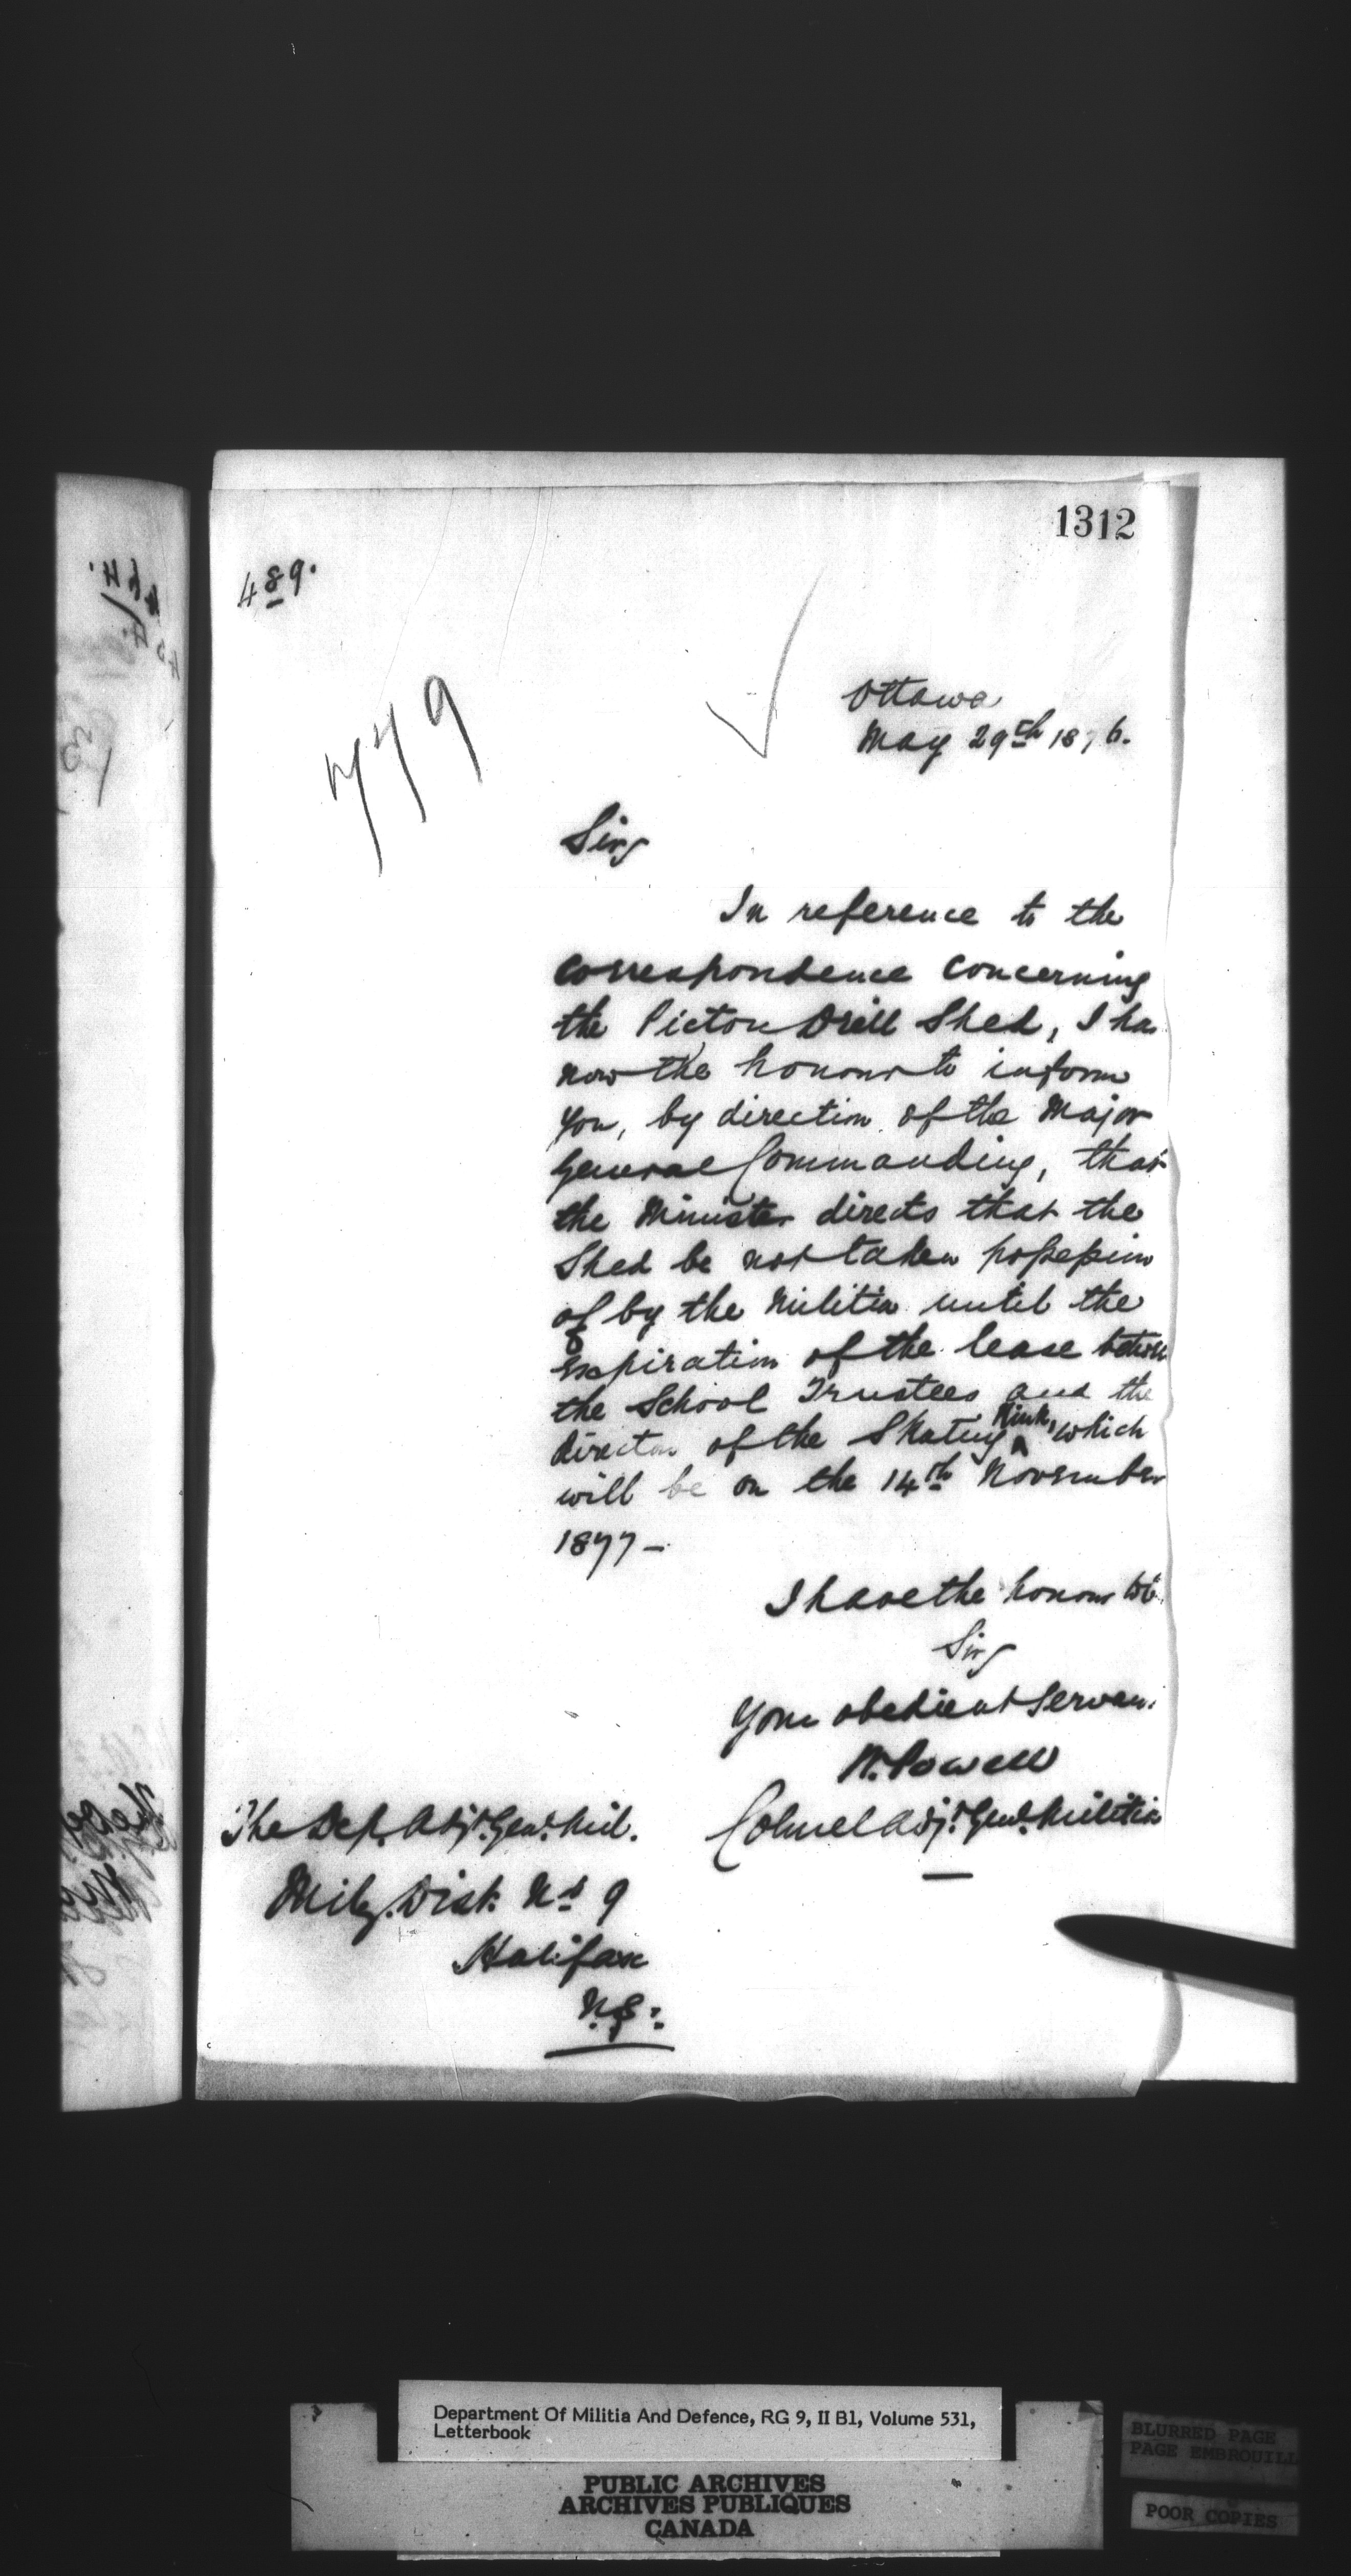 1312
489.
779
Ottawa
May 29th 1876.
Sir,
In reference to the
correspondence concerning
the Pictou Drill Shed, I ha
now the honour to inform
you, by direction of the Major
General Commanding, that
the Minister directs that the
Shed be not taken possession
of by the Militia until the
expiration of the lease between
the School Trustees and the
director of the Skating Rink, which
will be on the 14th November
1877 —
I have the honour to be
Sir,
Your obedient Servan
W. Powell
Colonel Adjt. Genl. Militia
The Dep. Adjt. Genl. Mil.
Mily. Dist. No 9
Halifax
N.S.
Department Of Militia And Defence, RG 9, II B1, Volume 531,
Letterbook
PUBLIC ARCHIVES
ARCHIVES PUBLIQUES
CANADA
BLURRED PAGE
PAGE EMBROUILL
POOR COPIES